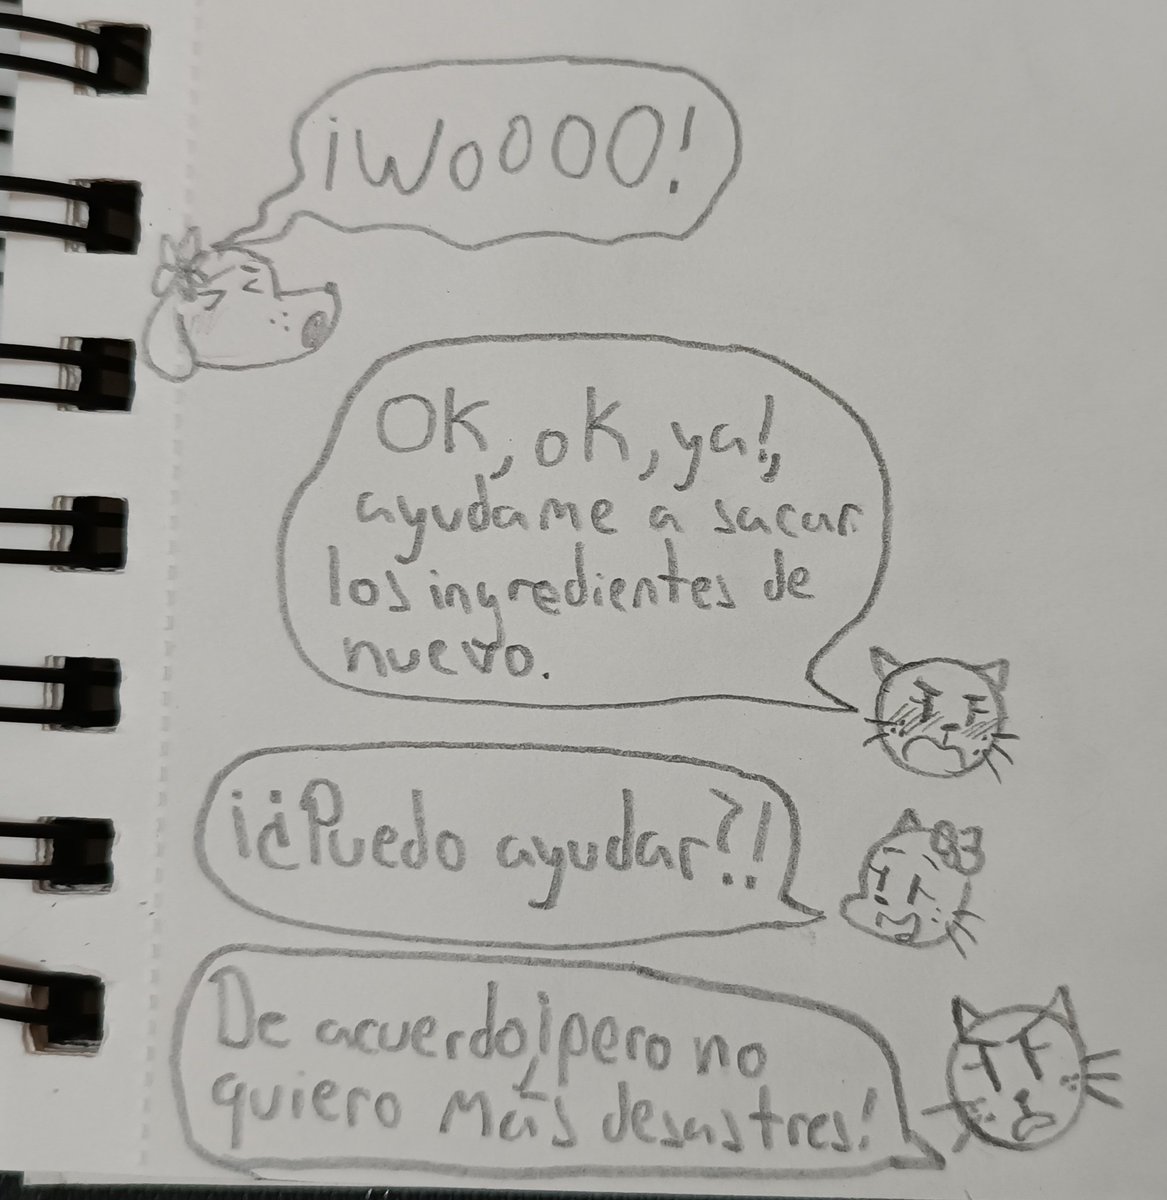 ¡WoOOO!
OK, oK, ya!,
ayudame a sacar
los ingredientes de
nuevo.
¡¿Puedo ayudar?!
De acuerdo, ¡pero no
quiero más desastres!